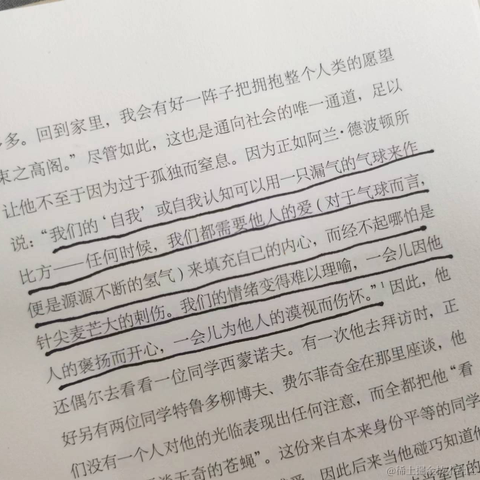 多。回到家里，我会有好一阵子把拥抱整个人类的愿望
束之高阁。”尽管如此，这也是通向社会的唯一通道，足以
让他不至于因为过于孤独而窒息。因为正如阿兰·德波顿所
说：“我们的‘自我’或自我认知可以用一只漏气的气球来作
比方——任何时候，我们都需要他人的爱（对于气球而言，
便是源源不断的氢气）来填充自己的内心，而经不起哪怕是
针尖麦芒大的刺伤。我们的情绪变得难以理喻，一会儿因他
人的褒扬而开心，一会儿为他人的漠视而伤怀。”¹因此，他
还偶尔去看看一位同学西蒙诺夫。有一次他去拜访时，正
好另有两位同学特鲁多柳博夫、费尔菲奇金在那里座谈，他
们没有一个人对他的光临表现出任何注意，而全都把他“看
无奇的苍蝇”。这份来自本来身份平等的同学
因此后来当他碰巧知道他